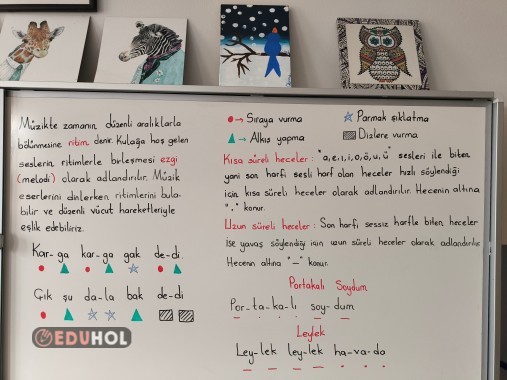 Müzikte zamanın, düzenli aralıklarla
bölünmesine ritim denir. Kulağa hoş gelen
seslerin ritimlerle birleşmesi ezgi
(melodi) olarak adlandırılır. Müzik
eserlerini dinlerken ritimlerini bula-
bilir ve düzenli vücut hareketleriyle
eşlik edebiliriz.
Kar-ga kar-ga gak de-di
Çık şu da-la bak de-di
EDUHOL
→ Sıraya vurma
Parmak şıklatma
→ Alkış yapma
Dizlere vurma
Kısa süreli heceler: "a,e,ı,i,o,ö,u,ü" sesleri ile biten
yani son harfi sesli harf olan heceler hızlı söylendiği
için kısa süreli heceler olarak adlandırılır. Hecenin altına
"." konur.
Uzun süreli heceler: Son harfi sessiz harfle biten heceler
ise yavaş söylendiği için uzun süreli heceler olarak adlandırılır.
Hecenin altına "_" konur.
Portakalı Soydum
Por-ta-ka-lı soy-dum
_ . . . _ _
Leylek
Ley-lek ley-lek ha-va-da
_ _ _ _ . . .